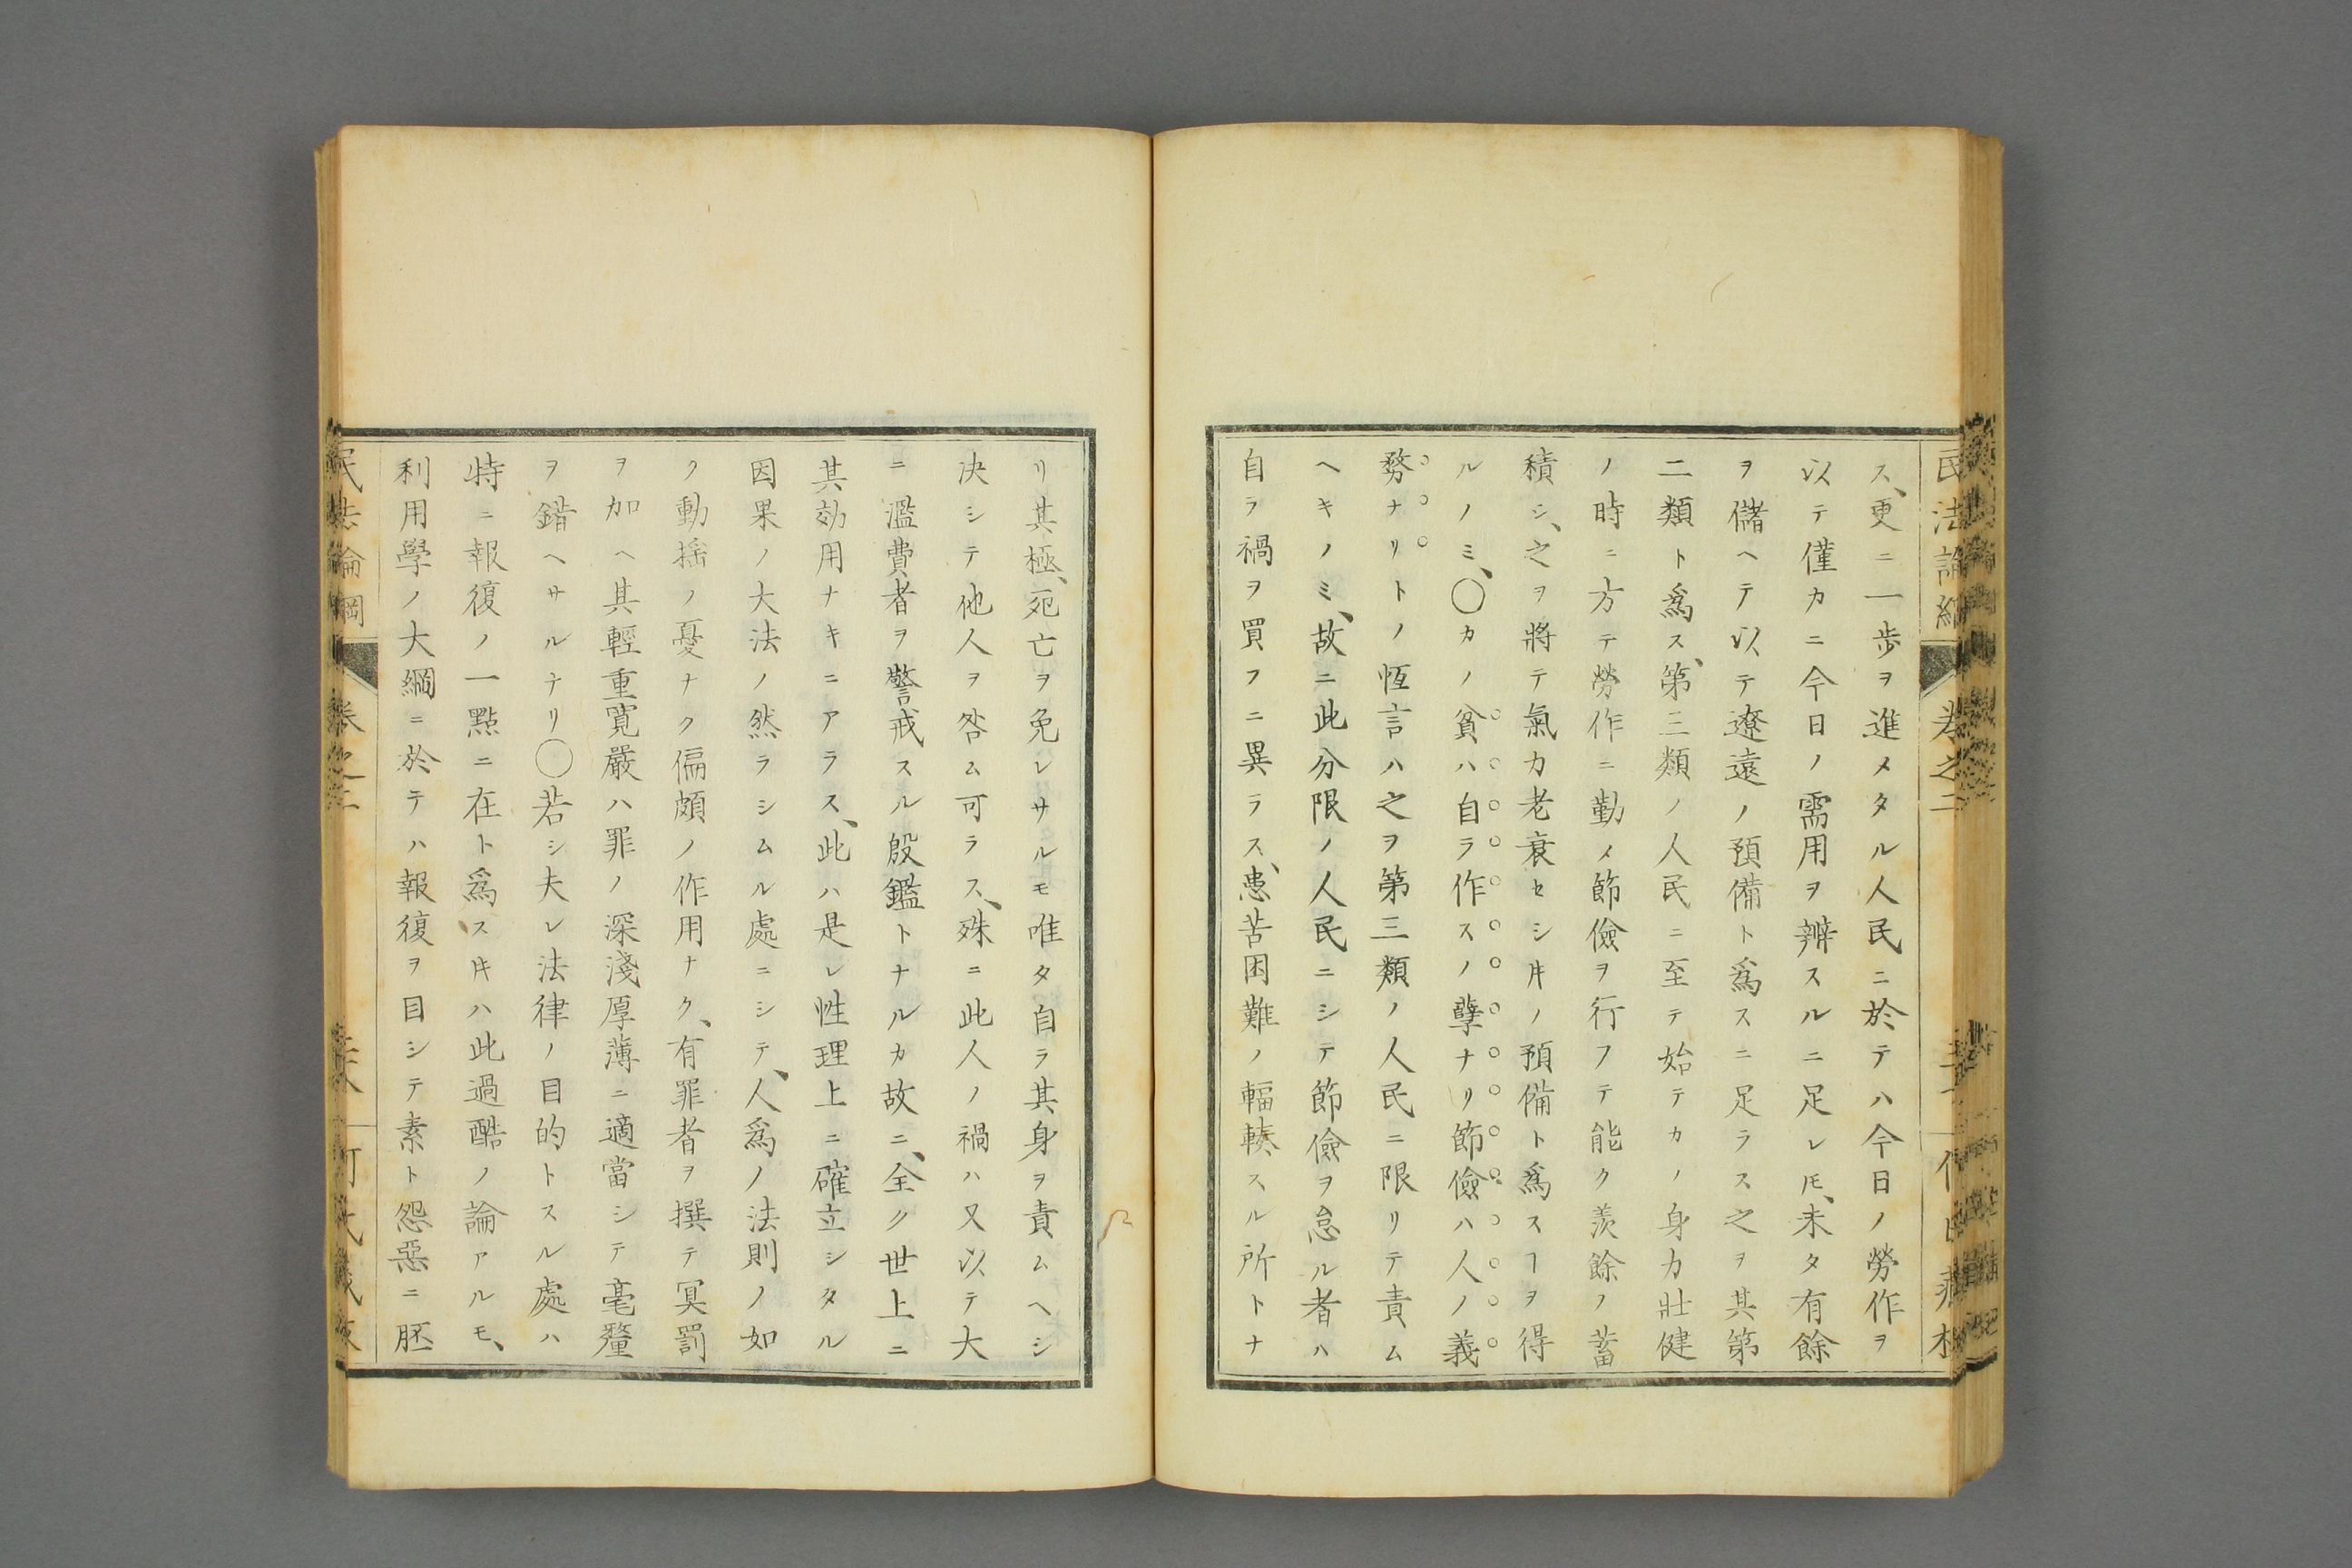 ス、更ニ一歩ヲ進メタル人民ニ於テハ今日ノ勞作ヲ
以テ僅カニ今日ノ需用ヲ辨スルニ足レ𪜈、未タ有餘
ヲ儲ヘテ以テ遼遠ノ預備ト爲スニ足ラス之ヲ其第
二類ト爲ス、第三類ノ人民ニ至テ始テカノ身力壯健
ノ時ニ方テ勞作ニ勤メ節儉ヲ行フテ能ク羨餘ノ蓄
積シ、之ヲ將テ氣力老衰セシ𪜀ノ預備ト爲スヿヲ得
ルノミ、〇カノ貧ハ自ラ作スノ孽ナリ節儉ハ人ノ義
務ナリトノ恆言ハ之ヲ第三類ノ人民ニ限リテ責ム
ヘキノミ、故ニ此分限ノ人民ニシテ節儉ヲ怠ル者ハ
自ラ禍ヲ買フニ異ラス、患苦困難ノ輻輳スル所トナ
リ其極、死亡ヲ免レサルモ唯タ自ラ其身ヲ責ムヘシ
决シテ他人ヲ咎ム可ラス、殊ニ此人ノ禍ハ又以テ大
ニ濫費者ヲ警戒スル殷鑑トナルカ故ニ、全ク世上ニ
其効用ナキニアラス、此ハ是レ性理上ニ確立シタル
因果ノ大法ノ然ラシムル處ニシテ、人爲ノ法則ノ如
ク動揺ノ憂ナク偏頗ノ作用ナク、有罪者ヲ撰テ冥罰
ヲ加ヘ其輕重寛嚴ハ罪ノ深淺厚薄ニ適當シテ毫釐
ヲ錯ヘサルナリ〇若シ夫レ法律ノ目的トスル處ハ
特ニ報復ノ一點ニ在ト爲ス𪜀ハ此過酷ノ論アルモ、
利用學ノ大綱ニ於テハ報復ヲ目シテ素ト怨惡ニ胚
民法論綱
卷之二